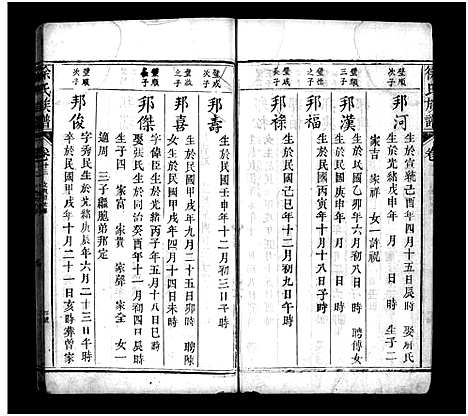 徐氏族譜
卷
璧順
次子
邦河
生於宣統己酉年四月十五日辰時
生於光緒庚申年 月 日 時 生子二
家吉 家祥 女一許祝
璧成
三子
邦漢
生於民國乙卯年六月初八日寅時 聘傅女
生於民國庚申年 月 日 時
璧
之子
邦福
生於民國 年十月十八日子時
邦祿
生於民國己巳年十二月初九日午時
璧成
次子
邦壽
生於民國壬申年十二月初三日午時
璧
之子
邦喜
生於民國甲戌年九月二十日卯時 聘陳
女生於民國甲戌年四月十四日未時
璧順
長子
邦傑
字偉臣生於光緒丙子年五月十八日巳時
娶張氏生於同治癸酉年十一月初四日時
生子四 家富 家貴 家聲 家全 女一
適周 三子繼胞弟邦定
璧順
次子
邦俊
字秀民生於光緒庚辰年六月二十三日午時
卒於民國甲戌年十月二十一日亥時葬曾家
徐氏族譜
卷